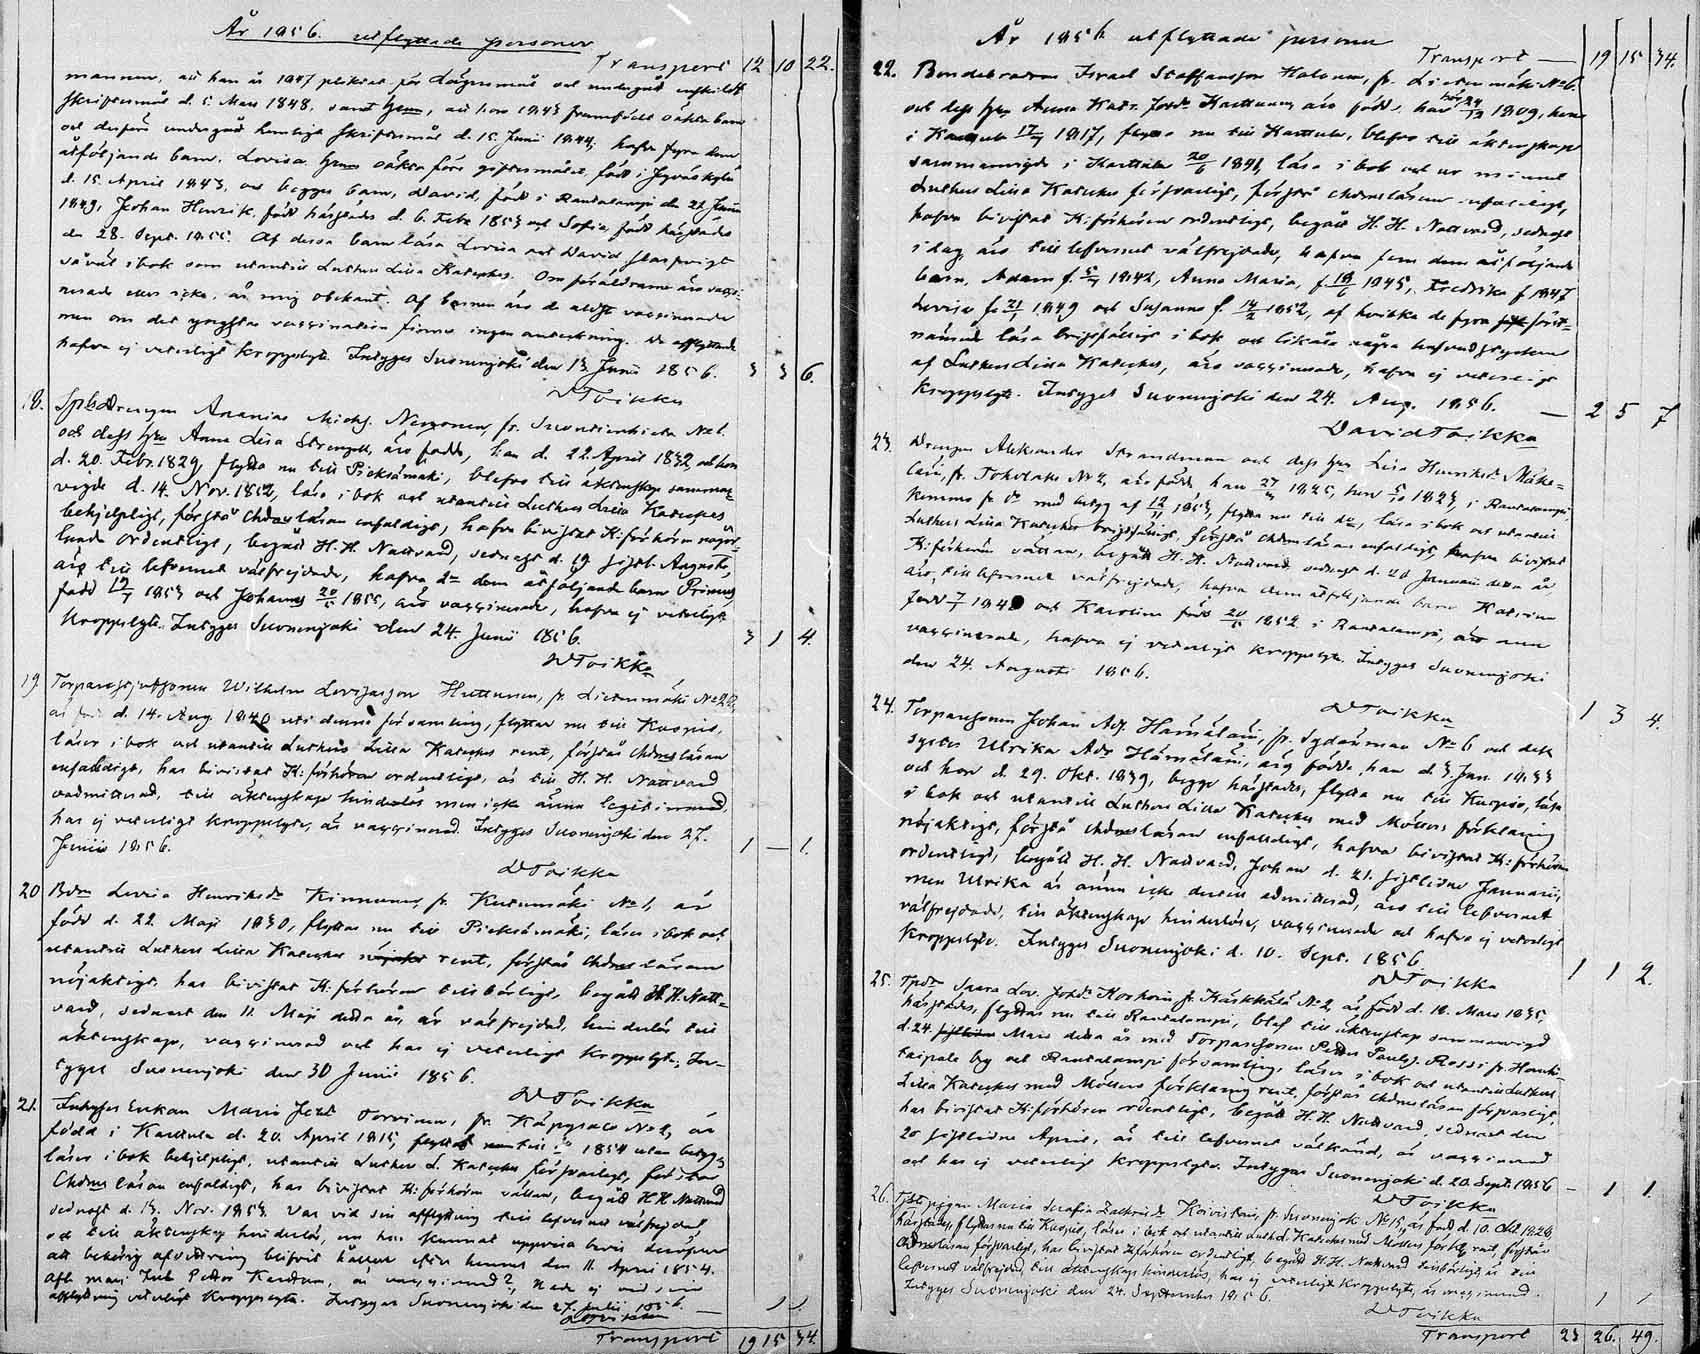 År 1856. utflyttade personer
Transport 12 10 22.
mannen, att han år 1847 pliktat för Lägersmål och undergått enskildt
skriftermål d. 5 Mars 1848, samt hun, att hon 1843 framfödt oäkta barn
och derföre undergått hemligt skriftermål d. 15 Junii 1844; hafva fyra dem
åtföljande barn, Lovisa, hans oäkta före giftermålet, född i Jyväskylä
d. 15 April 1843, och begges barn, David, född i Rautalampi den 21 Junii
1849, Johan Henrik, född härstädes d. 6. Febr 1853 och Sofia, född härstädes
den 28. Sept. 1855. Af dessa barn läsa Lovisa och David
såväl i bok som utantill Luthers Lilla Kateches. Om föräldrarne äro vacci-
nerade eller icke, är mig obekant. Af barnen äro de äldste vaccinerade
men om det yngstas vaccination finnes ingen anteckning. De afflyttande
hafva ej veterligt kroppslyte. Intygges Suonenjoki den 13 Junii 1856. 3 3 6.
DToikka
18. Splb. Drengen Ananias Michs. Neuvonen, fr. Suontienkieta No 1.
och dess hru Anna Lisa Strengell, äro födde, han d. 22. April 1832, och hon
d. 20. Febr. 1829, flytta nu till Pieksämäki, blefvo till äktenskap samman-
vigde d. 14. Nov. 1852, läsa i bok och utantill Luthers Lilla Kateches
behjelpligt, förstå Chdomsläran enfaldigt, hafva bivistat K:förhören någor-
lunda ordentligt, begått H.H. Nattvard, sednast d. 19 sistl. Augusti,
äro till lefvernet välfrejdade, hafva 2ne dem åtföljande barn Primus,
född 1853 och Johannes 20/5 1855, äro vaccinerade, hafva ej veterligt
kroppslyte. Intygges Suonenjoki den 24. Junii 1856. 3 1 4.
DToikka
19. Torparesytsonen Wilhelm Lovisasson Huttunen, fr. Lietemäki No 20,
är född d. 14. Aug. 1840 uti denna församling, flyttar nu till Kuopio,
läser i bok och utantill Luthers Lilla Kateches rent, förstår Chdomsläran
enfaldigt, har bivistat K:förhören ordentligt, är till H.H. Nattvard
oadmitterad, till äktenskap hinderlös men icke ännu legitimerad,
har ej veterligt kroppslyte, är vaccinerad. Intygges Suonenjoki den 27.
Junii 1856. 1 — 1.
DToikka
20 Bdr Lovisa Henriksdr Kinnunen, fr. Kutumäki No 1, är
född d. 22 Maji 1830, flyttar nu till Pieksämäki, läser i bok och
utantill Luthers Lilla Kateches nöjakt rent, förstår Chdomsläran
nöjaktigt, har bivistat K:förhören tillbörligt, begått H.H. Natt-
vard, sednast den 11. Maji detta år, är välfrejdad, hinderlös till
äktenskap, vaccinerad och har ej veterligt kroppslyte; In-
tyges Suonenjoki den 30 Junii 1856.
DToikka
21. Inhyses Enkan Maria Torvinen, fr. Käpysalo No 2, är
född i Karttula d. 20. April 1815, flyttat 1854 utan betyg,
läser i bok behjelpligt, utantill Luthers L. Kateches försvarligt, förstår
Chdomsläran enfaldigt, har bivistat K:förhören sällan, begått H.H. Nattvard
sednast d. 13. Nov. 1853. Var vid sin afflyttning till lefvernet välfrejdad,
och till äktenskap hinderlös, om hon kunnat uppvisa bevis deröfver
att behörig afvittring blifvit hållen efter hennes den 11. April 1854.
afl. man Petter är vaccinerad?, hade ej vid sin
afflyttning veterligt kroppslyte. Intygges Suonenjoki den 27. Julii 1856.
DToikka
Transport 19 15 34.
År 1856 utflyttade personer
Transport — 19 15 34.
22. Bondebrodren Israel Staffansson Halonen, fr. Lietemäki No 6.
och dess hru Anna Kaisa Jonsdr Karttunen, äro födde, han här 1809, hon
i Karttula 1817, flytta nu till Karttula, blefvo till äktenskap
sammanvigde i Karttula 20/6 1841, läsa i bok och ur minnet
Luthers Lilla Kateches försvarligt, förstå chdomsläran enfaldigt,
hafva bivistat K:förhören ordentligt, begått H.H. Nattvard, sednast
i dag, äro till lefvernet välfrejdade, hafva fem dem åtföljande
barn, Adam f. 1842, Anna Maria, f. 1845, Fredrika f 1847
Lovisa f. 21/1 1849 och Susanna f. 14/2 1852, af hvilka de fyra först-
nämnda läsa bristfälligt i bok och likaså några hufvudstycken
af Luthers Lilla Kateches, äro vaccinerade, hafva ej veterligt
kroppslyte. Intygges Suonenjoki den 24. Aug. 1856. — 2 5 7
David Toikka
23. Drengen Aleksander Strandman och dess hru Lisa Henriksdr Mäke-
läin, fr. Toholaks No 2, äro födde, han 27/ 1825, hon 1823, i Rautalampi,
komne fr. do med betyg af 12/11 1853, flytta nu till do, läsa i bok och utantill
Luthers Lilla Kateches bristfälligt, förstå Chdomsläran enfaldigt, hafva bivistat
K:förhören sällan, begått H.H. Nattvard sednast d. 20 Januari detta år
äro till lefvernet välfrejdade, hafva dem åtföljande barn Katrina
född och Karolina född 20/5 1852 i Rautalampi, äro
vaccinerade, hafva ej veterligt kroppslyte. Intygges Suonenjoki
den 24. Augusti 1856.
DToikka 1 3 4.
24. Torparesonen Johan Ads. Hämäläin, fr. Sydänmaa No 6 och dess
syster Ulrika Adsdr Hämäläin, äro födde, han d. 3. Jan. 1833
och hon d. 29. Okt. 1839, begge härstädes, flytta nu till Kuopio, läsa
i bok och utantill Luthers Lilla Kateches med Möllers förklaring
nöjaktigt, förstå chdomsläran enfaldigt, hafva bivistat K:förhören
ordentligt, begått H.H. Nattvard, Johan d. 21. sistlidne Januarii,
men Ulrika är ännu icke dertill admitterad, äro till lefvernet
välfrejdade, till äktenskap hinderlösa, vaccinerade och hafva ej veterligt
kroppslyte. Intygges Suonenjoki d. 10. Sept. 1856 1 1 2.
DToikka
25. Tpdr Saara Lov. Johsdr Korhoin, fr. Kärkkälä No 2, är född d. 18. Mars 1835,
härstädes, flyttar nu till Rautalampi, blef till äktenskap sammanvigd
d. 24. sistlidne Mars detta år med Torparesonen Petter Paulss. Rossi fr. Hanka-
taipale by och Rautalampi församling, läser i bok och utantill Luthers
Lilla Kateches med Möllers förklaring rent, förstår Chdomsläran försvarligt,
har bivistat K:förhören ordentligt, begått H.H. Nattvard, sednast den
20 sistlidne April, är till lefvernet välkänd, är vaccinerad
och har ej veterligt kroppslyte. Intygges Suonenjoki d. 20. Sept. 1856 — 1 1.
DToikka
26. Tjstepigan Maria Serafia Zachrisdr Koivistoin, fr. Suonenjoki No 15, är född d. 10. Okt 1836
härstädes, flyttar nu till Kuopio, läser i bok och utantill Luth. L. Kateches med Möllers förkl. rent, förstår
Chdomsläran försvarligt, har bivistat K:förhören ordentligt, begått H.H. Nattvard tillbörligt, är till
lefvernet välfrejdad, till äktenskap hinderlös, har ej veterligt kroppslyte, är vaccinerad.
Intygges Suonenjoki den 24. September 1856. 1 1
DToikka
Transport 23 26. 49.